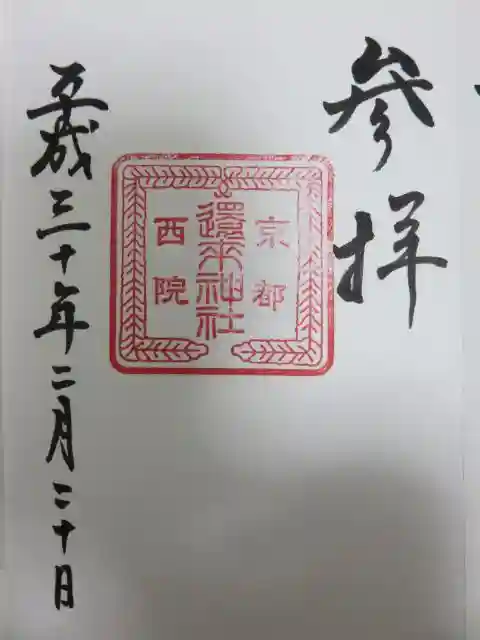 参拝
京都
還来神社
西院
平成三十年二月二十日